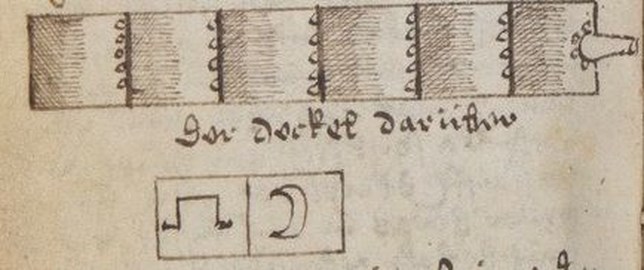 Der Deckel darüber